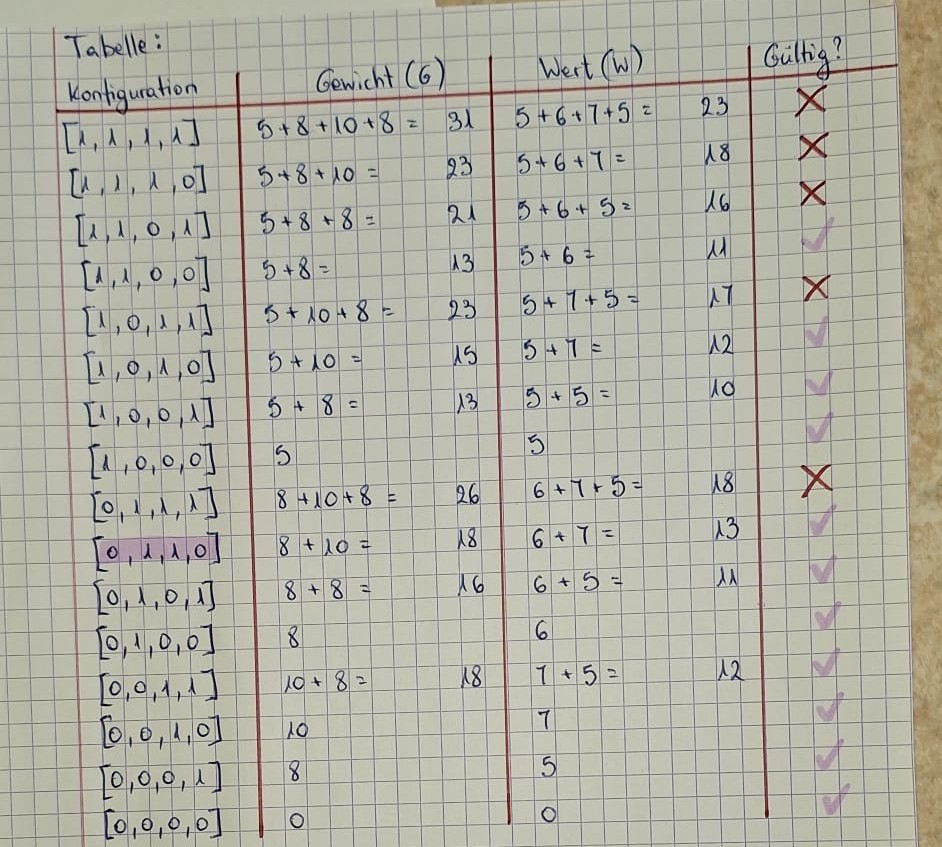 Tabelle:
Konfiguration Gewicht (G) Wert (W) Gültig?
[1, 1, 1, 1] 5+8+10+8 = 31 5+6+7+5 = 23 ✗
[1, 1, 1, 0] 5+8+10 = 23 5+6+7 = 18 ✗
[1, 1, 0, 1] 5+8+8 = 21 5+6+5 = 16 ✗
[1, 1, 0, 0] 5+8 = 13 5+6 = 11 ✓
[1, 0, 1, 1] 5+10+8 = 23 5+7+5 = 17 ✗
[1, 0, 1, 0] 5+10 = 15 5+7 = 12 ✓
[1, 0, 0, 1] 5 + 8 = 13 5+5 = 10 ✓
[1, 0, 0, 0] 5 5 ✓
[0, 1, 1, 1] 8+10+8 = 26 6+7+5 = 18 ✗
[0, 1, 1, 0] 8+10 = 18 6+7 = 13 ✓
[0, 1, 0, 1] 8+8 = 16 6+5 = 11 ✓
[0, 1, 0, 0] 8 6 ✓
[0, 0, 1, 1] 10+8 = 18 7+5 = 12 ✓
[0, 0, 1, 0] 10 7 ✓
[0, 0, 0, 1] 8 5 ✓
[0, 0, 0, 0] 0 0 ✓